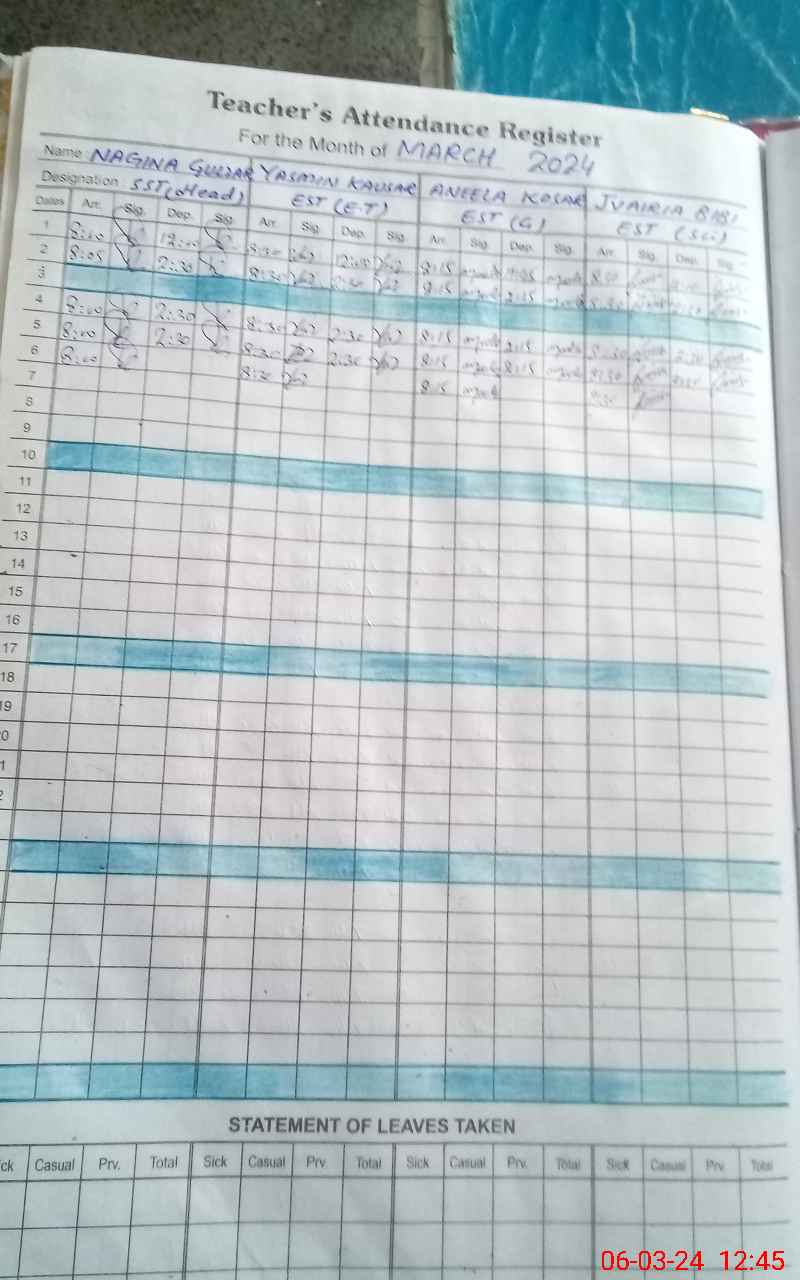 Teacher's Attendance Register
For the Month of MARCH 2024
Name NAGINA GULZAR YASMIN KAUSAR ANEELA KOSAR JVAIRIA BIBI
Designation SST (Head) EST (E.T) EST (G) EST (Sci)
Dates Arr. Sig. Dep. Sig. Arr. Sig. Dep. Sig. Arr. Sig. Dep. Sig. Arr. Sig. Dep. Sig.
1 8:10 12:00 8:30 12:00 8:15
2 8:05 2:30 8:30 2:30 8:15 2:15 8:30
3
4 8:00 2:30 8:30 2:30 8:15 2:15 8:30 2:30
5 8:00 2:30 8:30 2:30 8:15 8:15 8:30
6 8:00 8:30 8:15 8:30
7
8
9
10
11
12
13
14
15
16
17
18
19
0
1
2
STATEMENT OF LEAVES TAKEN
ck Casual Prv. Total Sick Casual Prv. Total Sick Casual Prv. Total Sick Casual Prv. Total
06-03-24 12:45